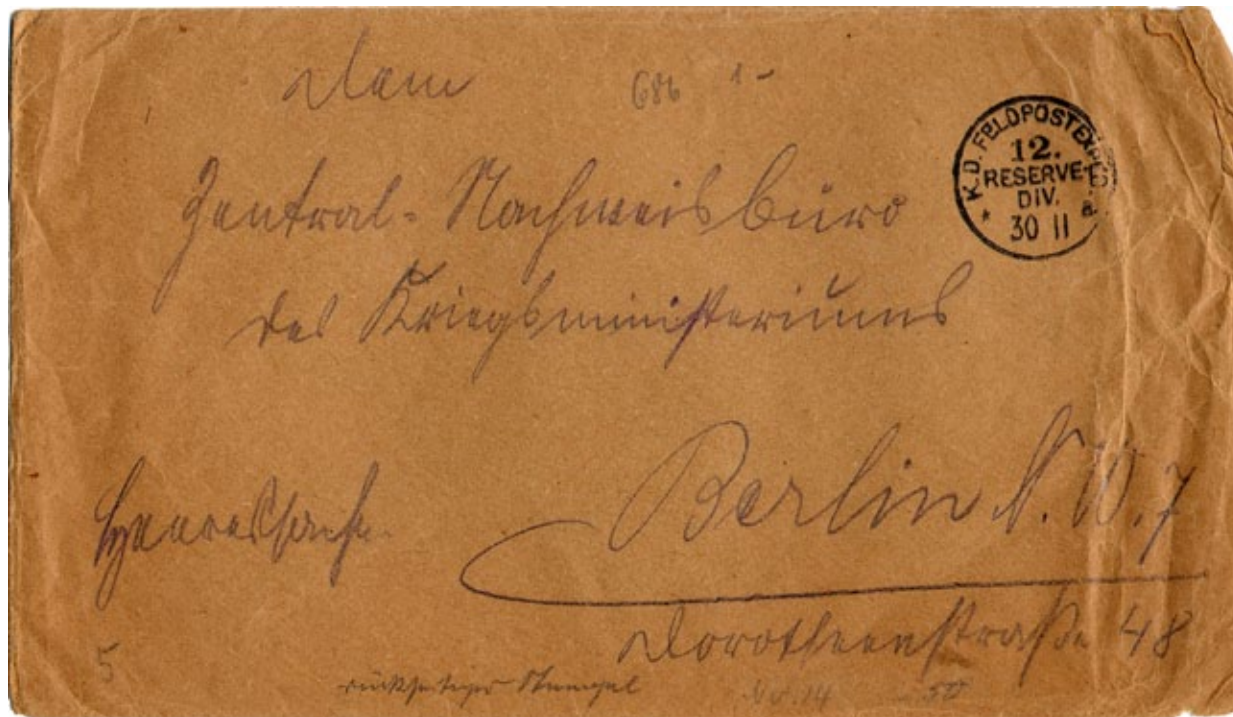 Dem
686 1-
K.D. FELDPOSTEXPED.
12.
RESERVE-
DIV.
* 30 11 a.
Zentral-Nachweisbüro
des Kriegsministeriums
Berlin N.W.7
Heeressache.
Dorotheenstraße 48
5
rückseitiger Stempel